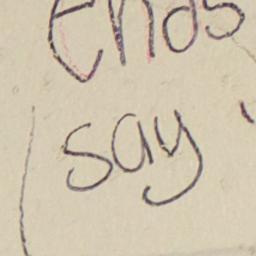 ends
say